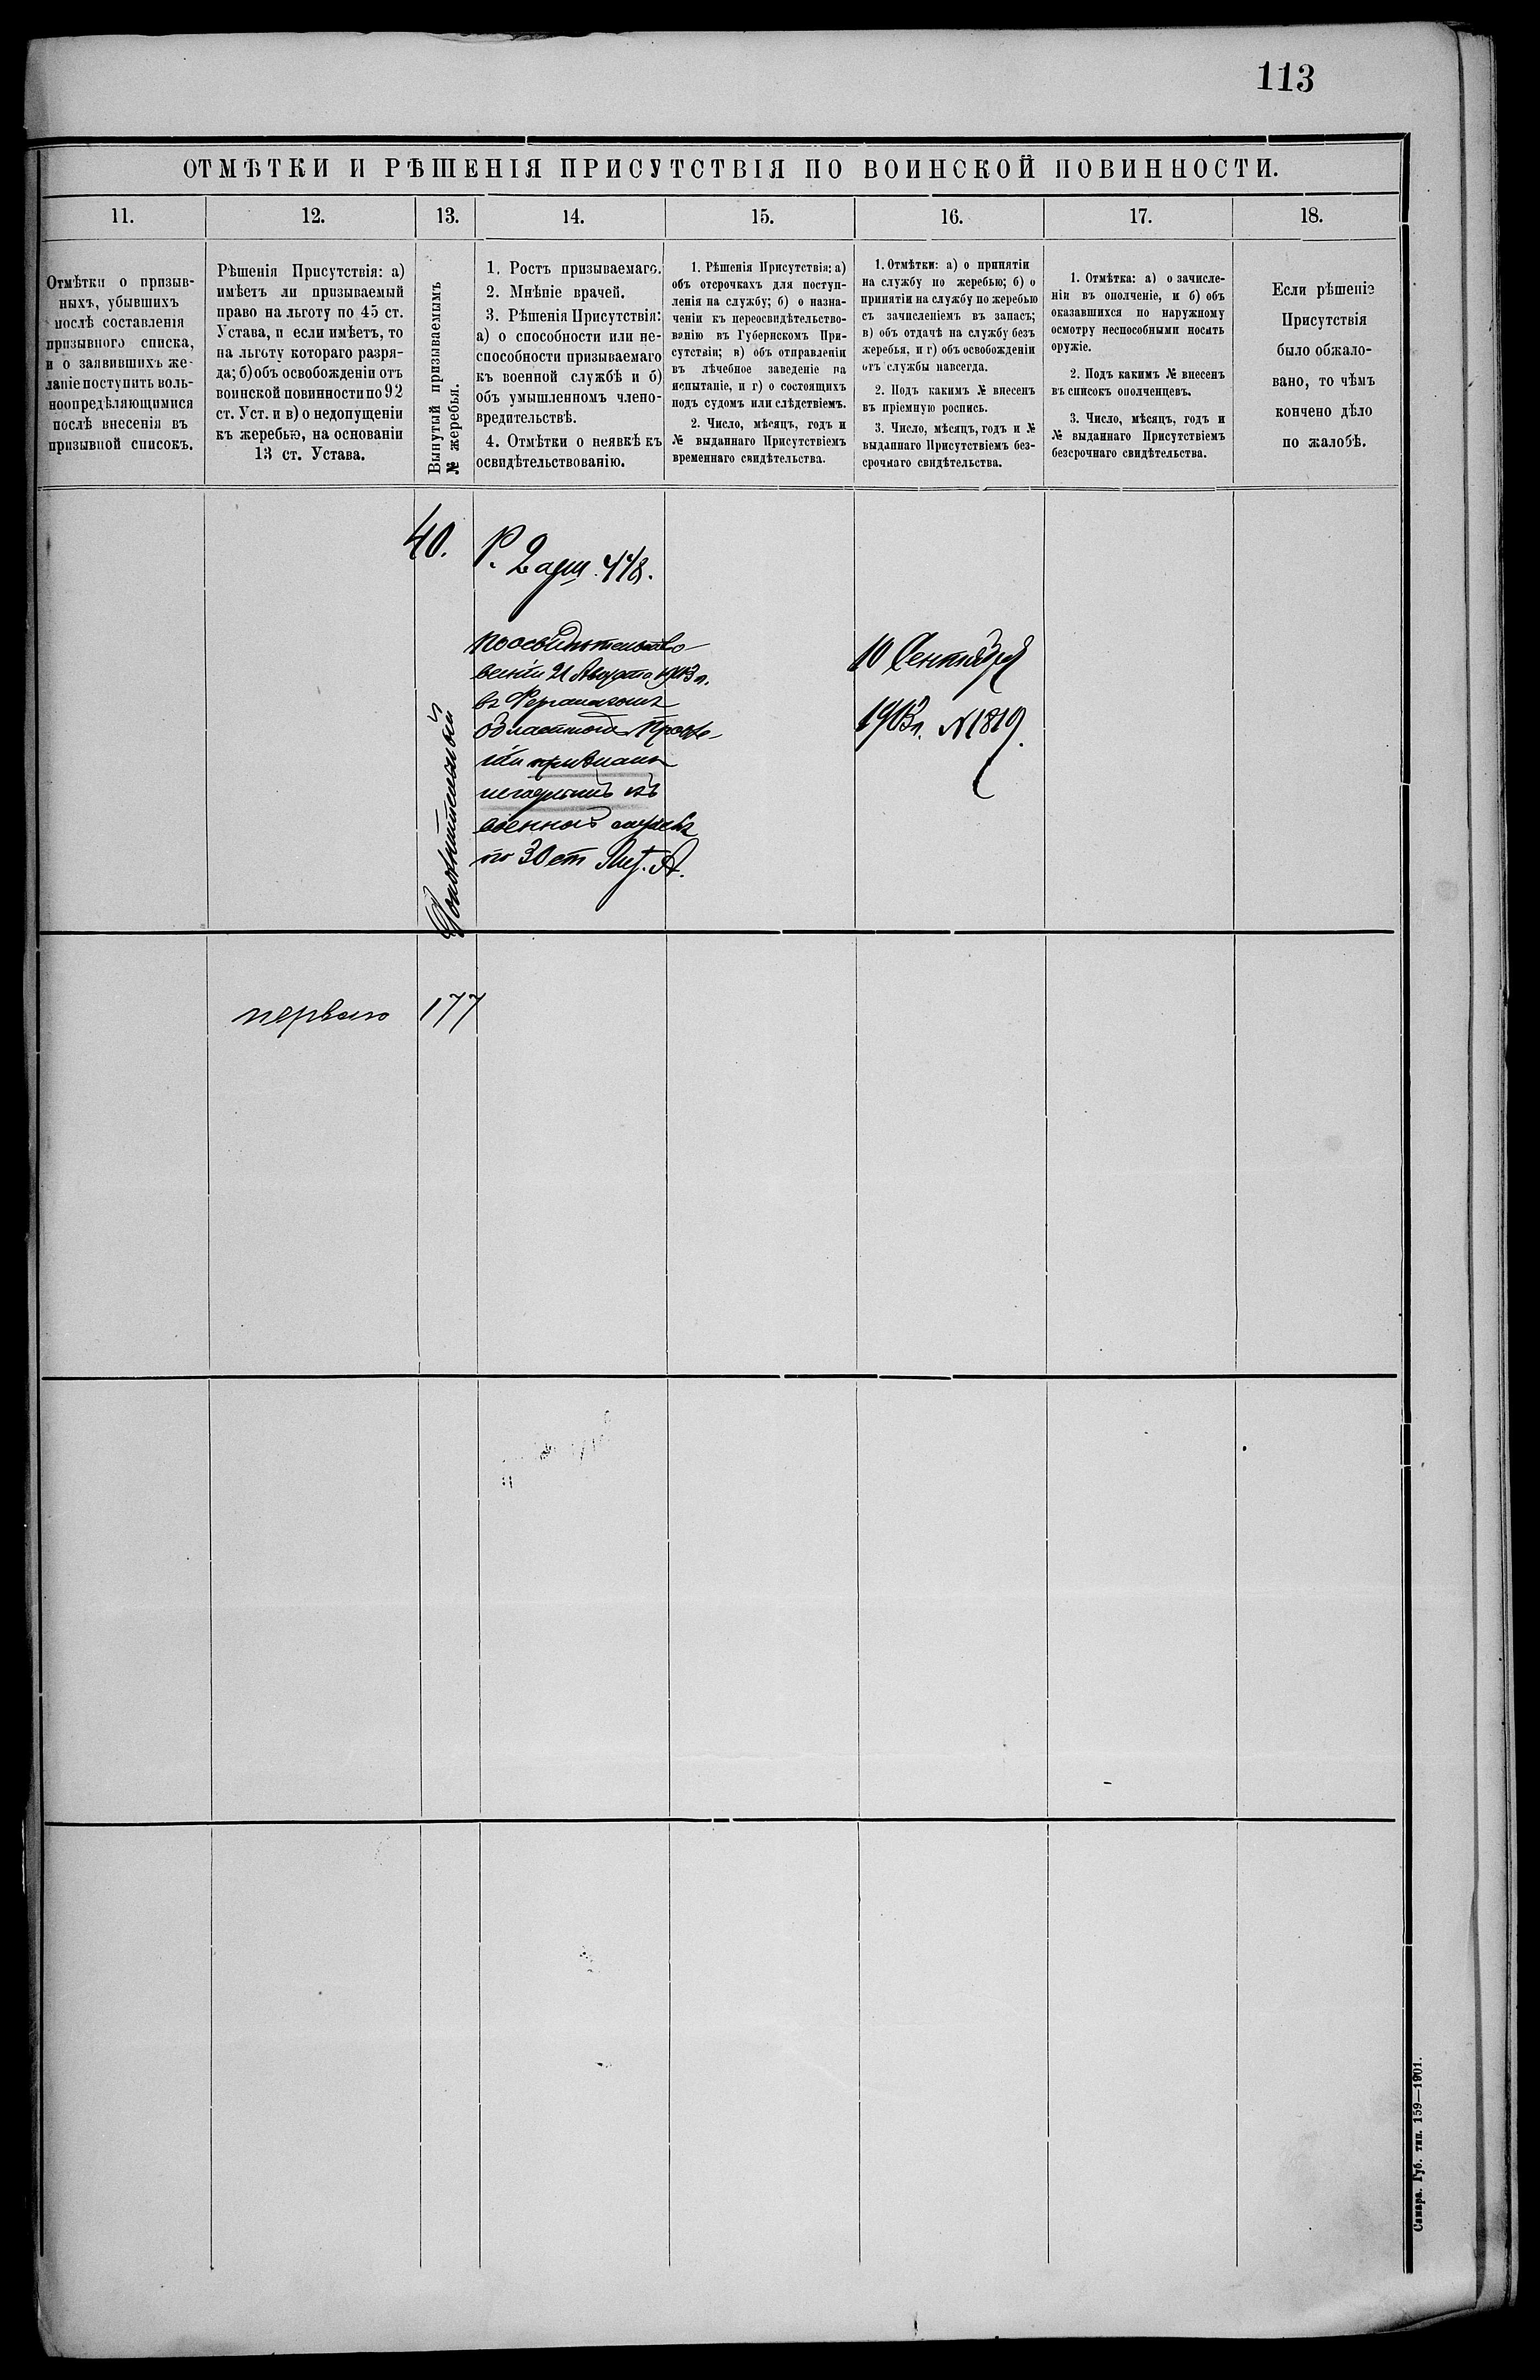 113
ОТМѢТКИ И РѢШЕНІЯ ПРИСУТСТВІЯ ПО ВОИНСКОЙ ПОВИННОСТИ.
11.
12.
13.
14.
15.
16.
17.
18.
Отмѣтки о призыв-
ныхъ, убывшихъ
послѣ составленія
призывного списка,
и о заявившихъ же-
ланіе поступить воль-
ноопредѣляющимися
послѣ внесенія въ
призывной списокъ.
Рѣшенія Присутствія: а)
имѣетъ ли призываемый
право на льготу по 45 ст.
Устава, и если имѣетъ, то
на льготу котораго разря-
да; б) объ освобожденіи отъ
воинской повинности по 92
ст. Уст. и в) о недопущеніи
къ жеребью, на основаніи
13 ст. Устава.
Вынутый призываемымъ
№ жеребья.
1. Ростъ призываемаго.
2. Мнѣніе врачей.
3. Рѣшенія Присутствія:
а) о способности или не-
способности призываемаго
къ военной службѣ и б)
объ умышленномъ члено-
вредительствѣ.
4. Отмѣтки о неявкѣ къ
освидѣтельствованію.
1. Рѣшенія Присутствія: а)
объ отсрочкахъ для поступ-
ленія на службу; б) о назна-
ченіи къ переосвидѣтельство-
ванію въ Губернскомъ При-
сутствіи; в) объ отправленіи
въ лѣчебное заведеніе на
испытаніе, и г) о состоящихъ
подъ судомъ или слѣдствіемъ.
2. Число, мѣсяцъ, годъ и
№ выданнаго Присутствіемъ
временнаго свидѣтельства.
1. Отмѣтки: а) о принятіи
на службу по жеребью; б) о
принятіи на службу по жеребью
съ зачисленіемъ въ запасъ;
в) объ отдачѣ на службу безъ
жеребья, и г) объ освобожденіи
отъ службы навсегда.
2. Подъ какимъ № внесенъ
въ пріемную роспись.
3. Число, мѣсяцъ, годъ и №
выданнаго Присутствіемъ без-
срочнаго свидѣтельства.
1. Отмѣтка: а) о зачисле-
ніи въ ополченіе, и б) объ
оказавшихся по наружному
осмотру неспособными носить
оружіе.
2. Подъ какимъ № внесенъ
въ списокъ ополченцевъ.
3. Число, мѣсяцъ, годъ и
№ выданнаго Присутствіемъ
безсрочнаго свидѣтельства.
Если рѣшеніе
Присутствія
было обжало-
вано, то чѣмъ
кончено дѣло
по жалобѣ.
40.
Дополнительный
Р. 2 арш. 4 4/8.
по освидѣтельство-
ваніи 21 Августа 1903 г.
въ Ферганскомъ
областномъ
признанъ
негоднымъ къ
военной службѣ
по 30 ст Лит. А.
10 Сентября
1903 г. N 1819.
перваго
177
Самара. Губ. тип. 159—1901.